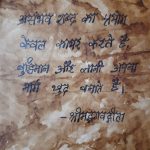 असंभव शब्द का प्रयोग
केवल कायर करते हैं,
बुद्धिमान और ज्ञानी अपना
मार्ग खुद बनाते हैं।
- श्रीमद्भगवद्गीता